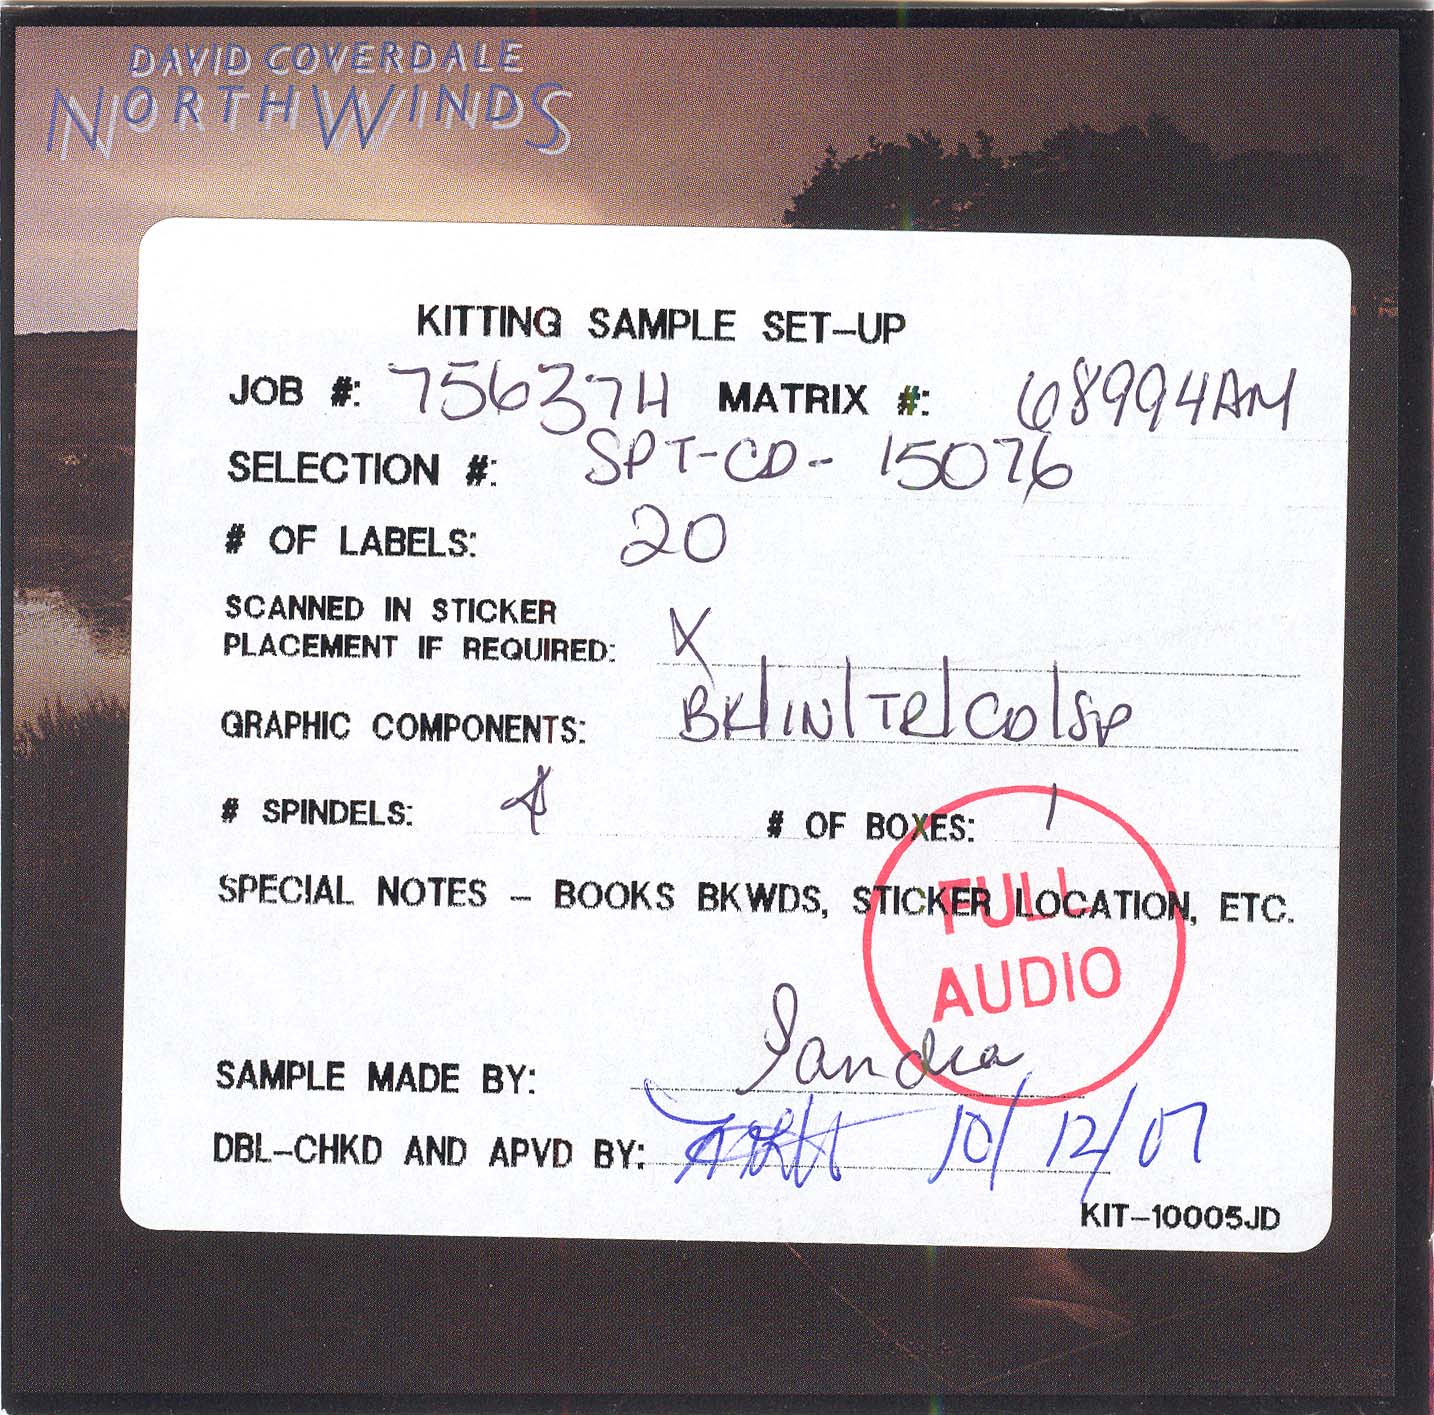 DAVID COVERDALE
NORTHWINDS
KITTING SAMPLE SET-UP
JOB #: 756374 MATRIX #: 68994AM
SELECTION #: SPT-CD-15076
# OF LABELS: 20
SCANNED IN STICKER
PLACEMENT IF REQUIRED: X
GRAPHIC COMPONENTS: BK/IN/TR/CD/SP
# SPINDELS: # OF BOXES: 1
SPECIAL NOTES - BOOKS BKWDS, STICKER LOCATION, ETC.
FULL
AUDIO
SAMPLE MADE BY: Sandra
DBL-CHKD AND APVD BY: 10/12/07
KIT-10005JD